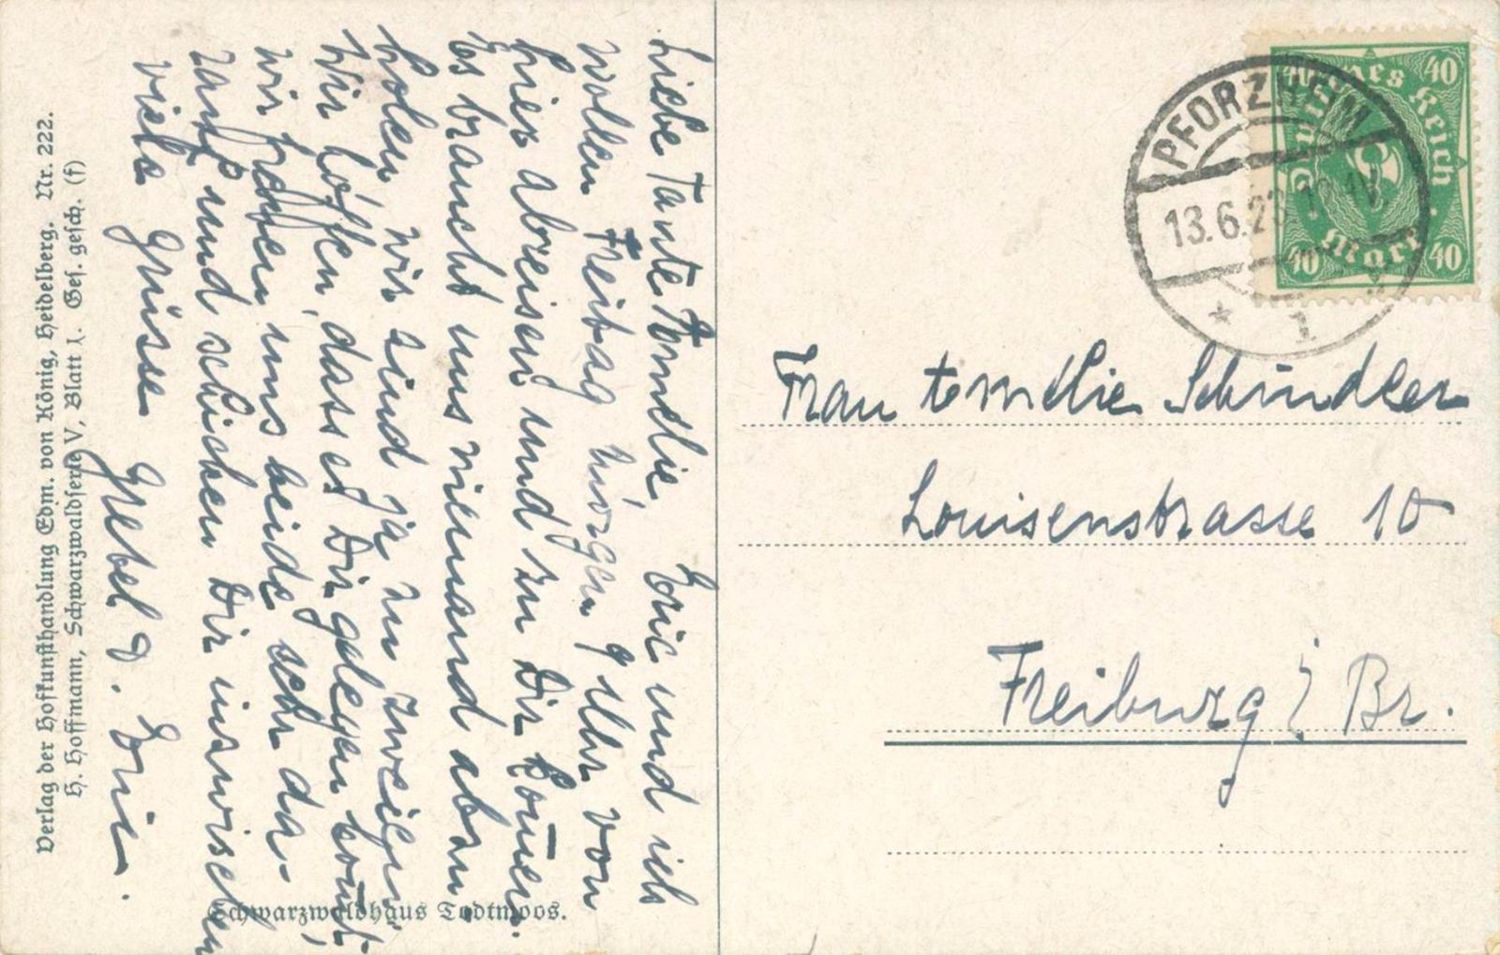 Liebe Tante Homelie Eric und ich
wollen Freitag morgen 9 Uhr von
hier abreisen und zu Dir kom̅en.
Es braucht uns niemand abzu
holen, wir sind ja zu zweien
Wir hoffen, dass es Dir gelegen kom̅t,
wir freuen uns beide sehr da-
rauf und schicken Dir inzwischen
viele Grüsse Gretel & Eric.
Verlag der Hofkunsthandlung Edm. von König, Heidelberg. Nr. 222.
H. Hoffmann, Schwarzwaldserie V, Blatt 1. Ges. gesch. (f)
Schwarzwaldhaus Todtmoos.
PFORZHEIM
13.6.23
* 1 *
40 40
Deutsches Reich
40 Mark 40
Frau Schindler
Louisenstrasse 10
Freiburg i Br.